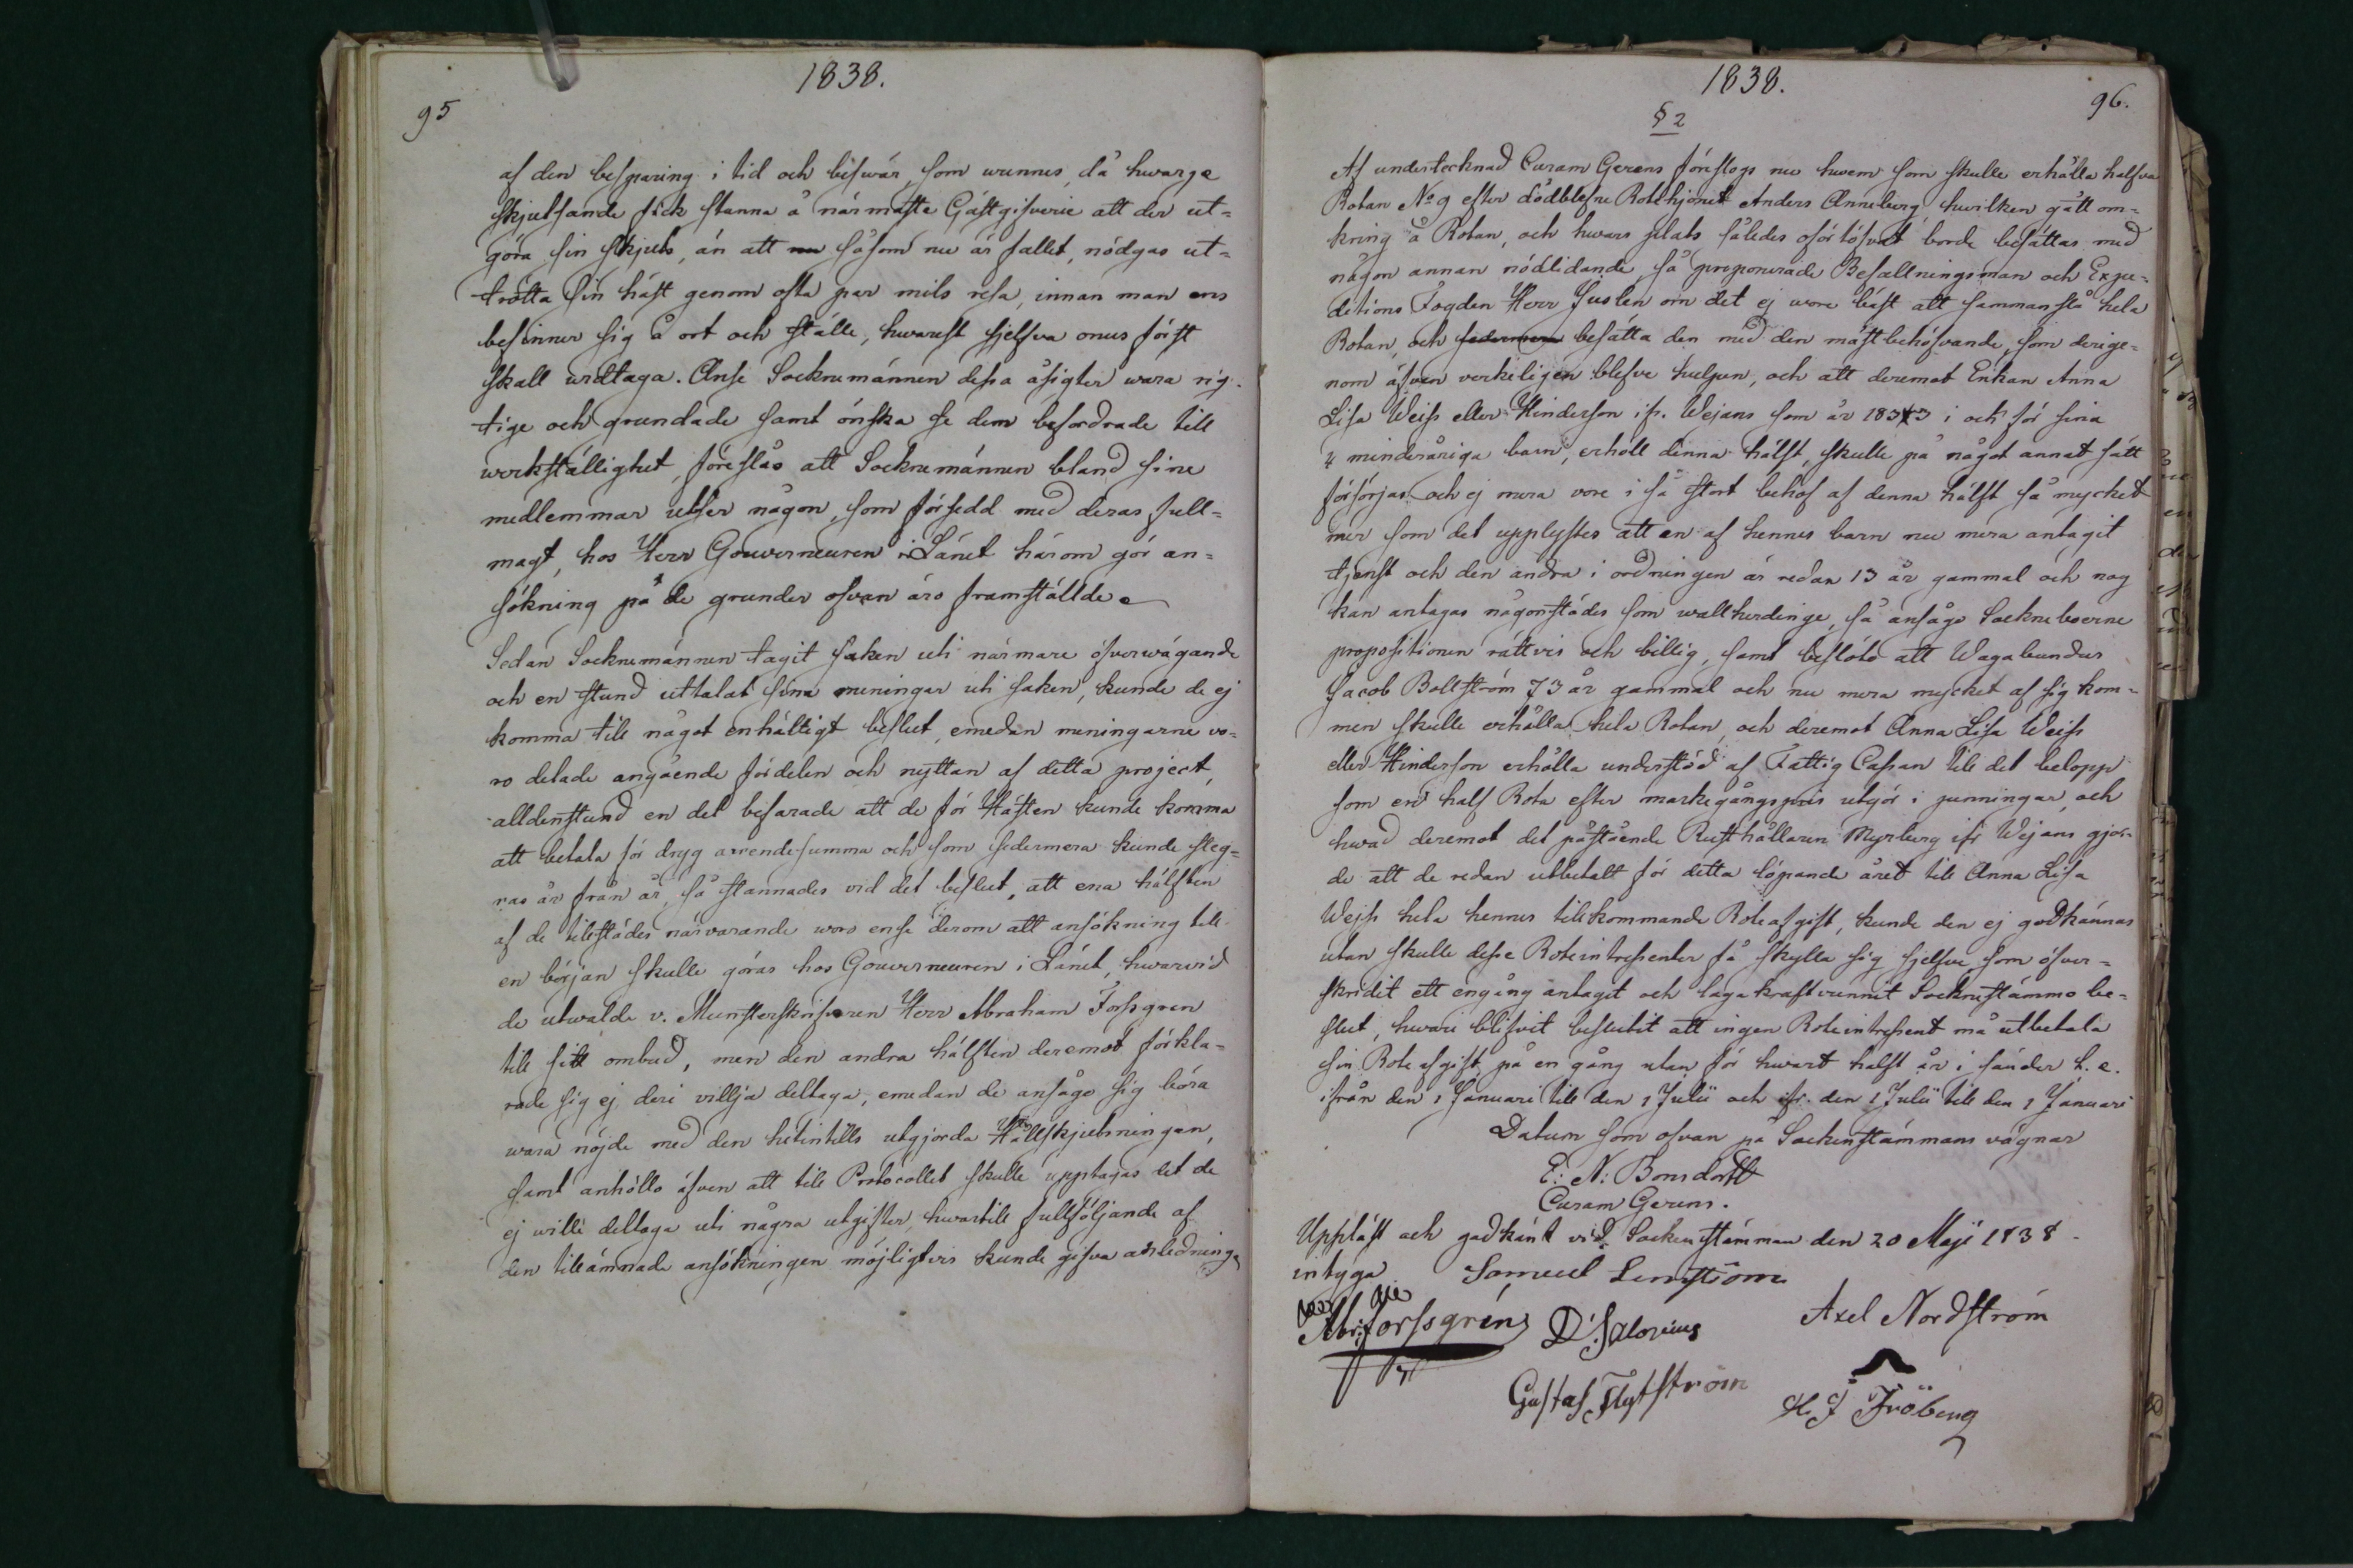 1838.
95
af den besparing i tid och beswär, som wunnes, då hwarje
skjutsande fick stanna å närmaste Gästgifverie att der ut=
göra sin skjuts, än att nu såsom nu är fallet, nödgas ut=
trötta sin häst genom ofta par mils resa, innan man ens
befinner sig å ort och ställe, hwarest sjelfva onus först
skall widtaga. Anse Socknemännen dessa åsigter wara rig-
tige och grundade samt önska se dem befordrade till
werkställighet, föreslås att Socknemännen bland sine
medlemmar utser någon, som försedd med deras full=
magt, hos Herr Gouverneuren i Länet härom gör an=
sökning på de grunder ofvan äro framställde.
Sedan Socknemännen tagit saken uti närmare öfverwägande
och en stund uttalat sina meningar uti saken, kunde de ej
komma till något enhälligt beslut, emedan meningarne vo=
ro delade angående fördelen och nyttan af detta project,
alldenstund en del befarade att de för Hästen kunde komma
att betala för dryg arrendesumma och som sedermera kunde steg=
ras år från år, så stannades vid det beslut, att ena hälften
af de tillstädes närvarande woro ense derom att ansökning till
en början skulle göras hos Gouverneuren i Länet, hwarvid
de utwalde v. Munsterskrifvaren Herr Abraham Forssgren
till sitt ombud, men den andra hälften deremot förkla=
rade sig ej deri villja deltaga, emedan de ansågo sig böra
wara nöjde med den hitintills utgjorda Hållskjutsningen,
samt anhöllo äfven att till Protocollet skulle upptagas det de
ej wille deltaga uti några utgifter, hwartill fullföljande af
den tillämnade ansökningen möjligtvis kunde gifva anledning
1838.
96.
§ 2
Af undertecknad Curam Gerens föreslogs nu hwem som skulle erhålla halfva
Rotan No 9 efter dödblefne Rotehjonet Anders Anneberg hwilken gått om=
kring å Rotan, och hwars plats således oförtöfvat borde besättas med
någon annan nödlidande, så proponerade Befallningsman och Expe=
ditions Fogden Herr Juslen om det ej wore bäst att sammanslå hela
Rotan, och sedermera besätta den med den mästbehöfvande, som derige=
nom äfven verkeligen blefve hulpen, och att deremot Enkan Anna
Lisa Weiss eller Hinderson ifr. Wejans som år 1833 i och för sina
4 minderåriga barn, erhöll denna hälft, skulle på något annat sätt
försörjas och ej mera vore i så stort behof af denna hälft så mycket
mer som det upplystes att en af hennes barn nu mera antagit
tjenst och den andra i ordningen är redan 13 år gammal och nog
kan antagas någonstädes som wallherdinge, så ansågo Sockneboerne
propositionen rättvis och billig, samt beslöto att Wagabundus
Jacob Bollström 73 år gammal och nu mera mycket af sig kom=
men skulle erhålla hela Rotan, och deremot Anna Lisa Weiss
eller Hinderson erhålla understöd af Fattig Cassan till det belopp
som en half Rota efter markegångspris utgör i penningar, och
hwad deremot det påstående Rusthållaren Myrberg ifr Wejans gjor=
de att de redan utbetalt för detta löpande året till Anna Lisa
Wejss hela hennes tillkommande Roteafgift, kunde den ej godkännas
utan skulle desse Roteintressenter få skylla sig sjelfve som öfver=
skridit ett engång antaget och lagakraftvunnit Socknestämmo be=
slut, hwari blifvit beslutit att ingen Roteintressent må utbetala
sin Roteafgift på en gång utan för hwart halft år i sänder t. e.
ifrån den 1 Januari till den 1 Julii och ifr. den 1 Julii till den 1 Januari
Datum som ofvan på Sockenstämmans vägnar
E: N: Bonsdorff
Curam Gerens.
Uppläst och godkänt vid Sockenstämman den 20 Maji 1838
intyga Samuel Lindström
Abr: Forssgrén D. Salonius Axel Nordström
Gustaf Flytström H. J Fröberg